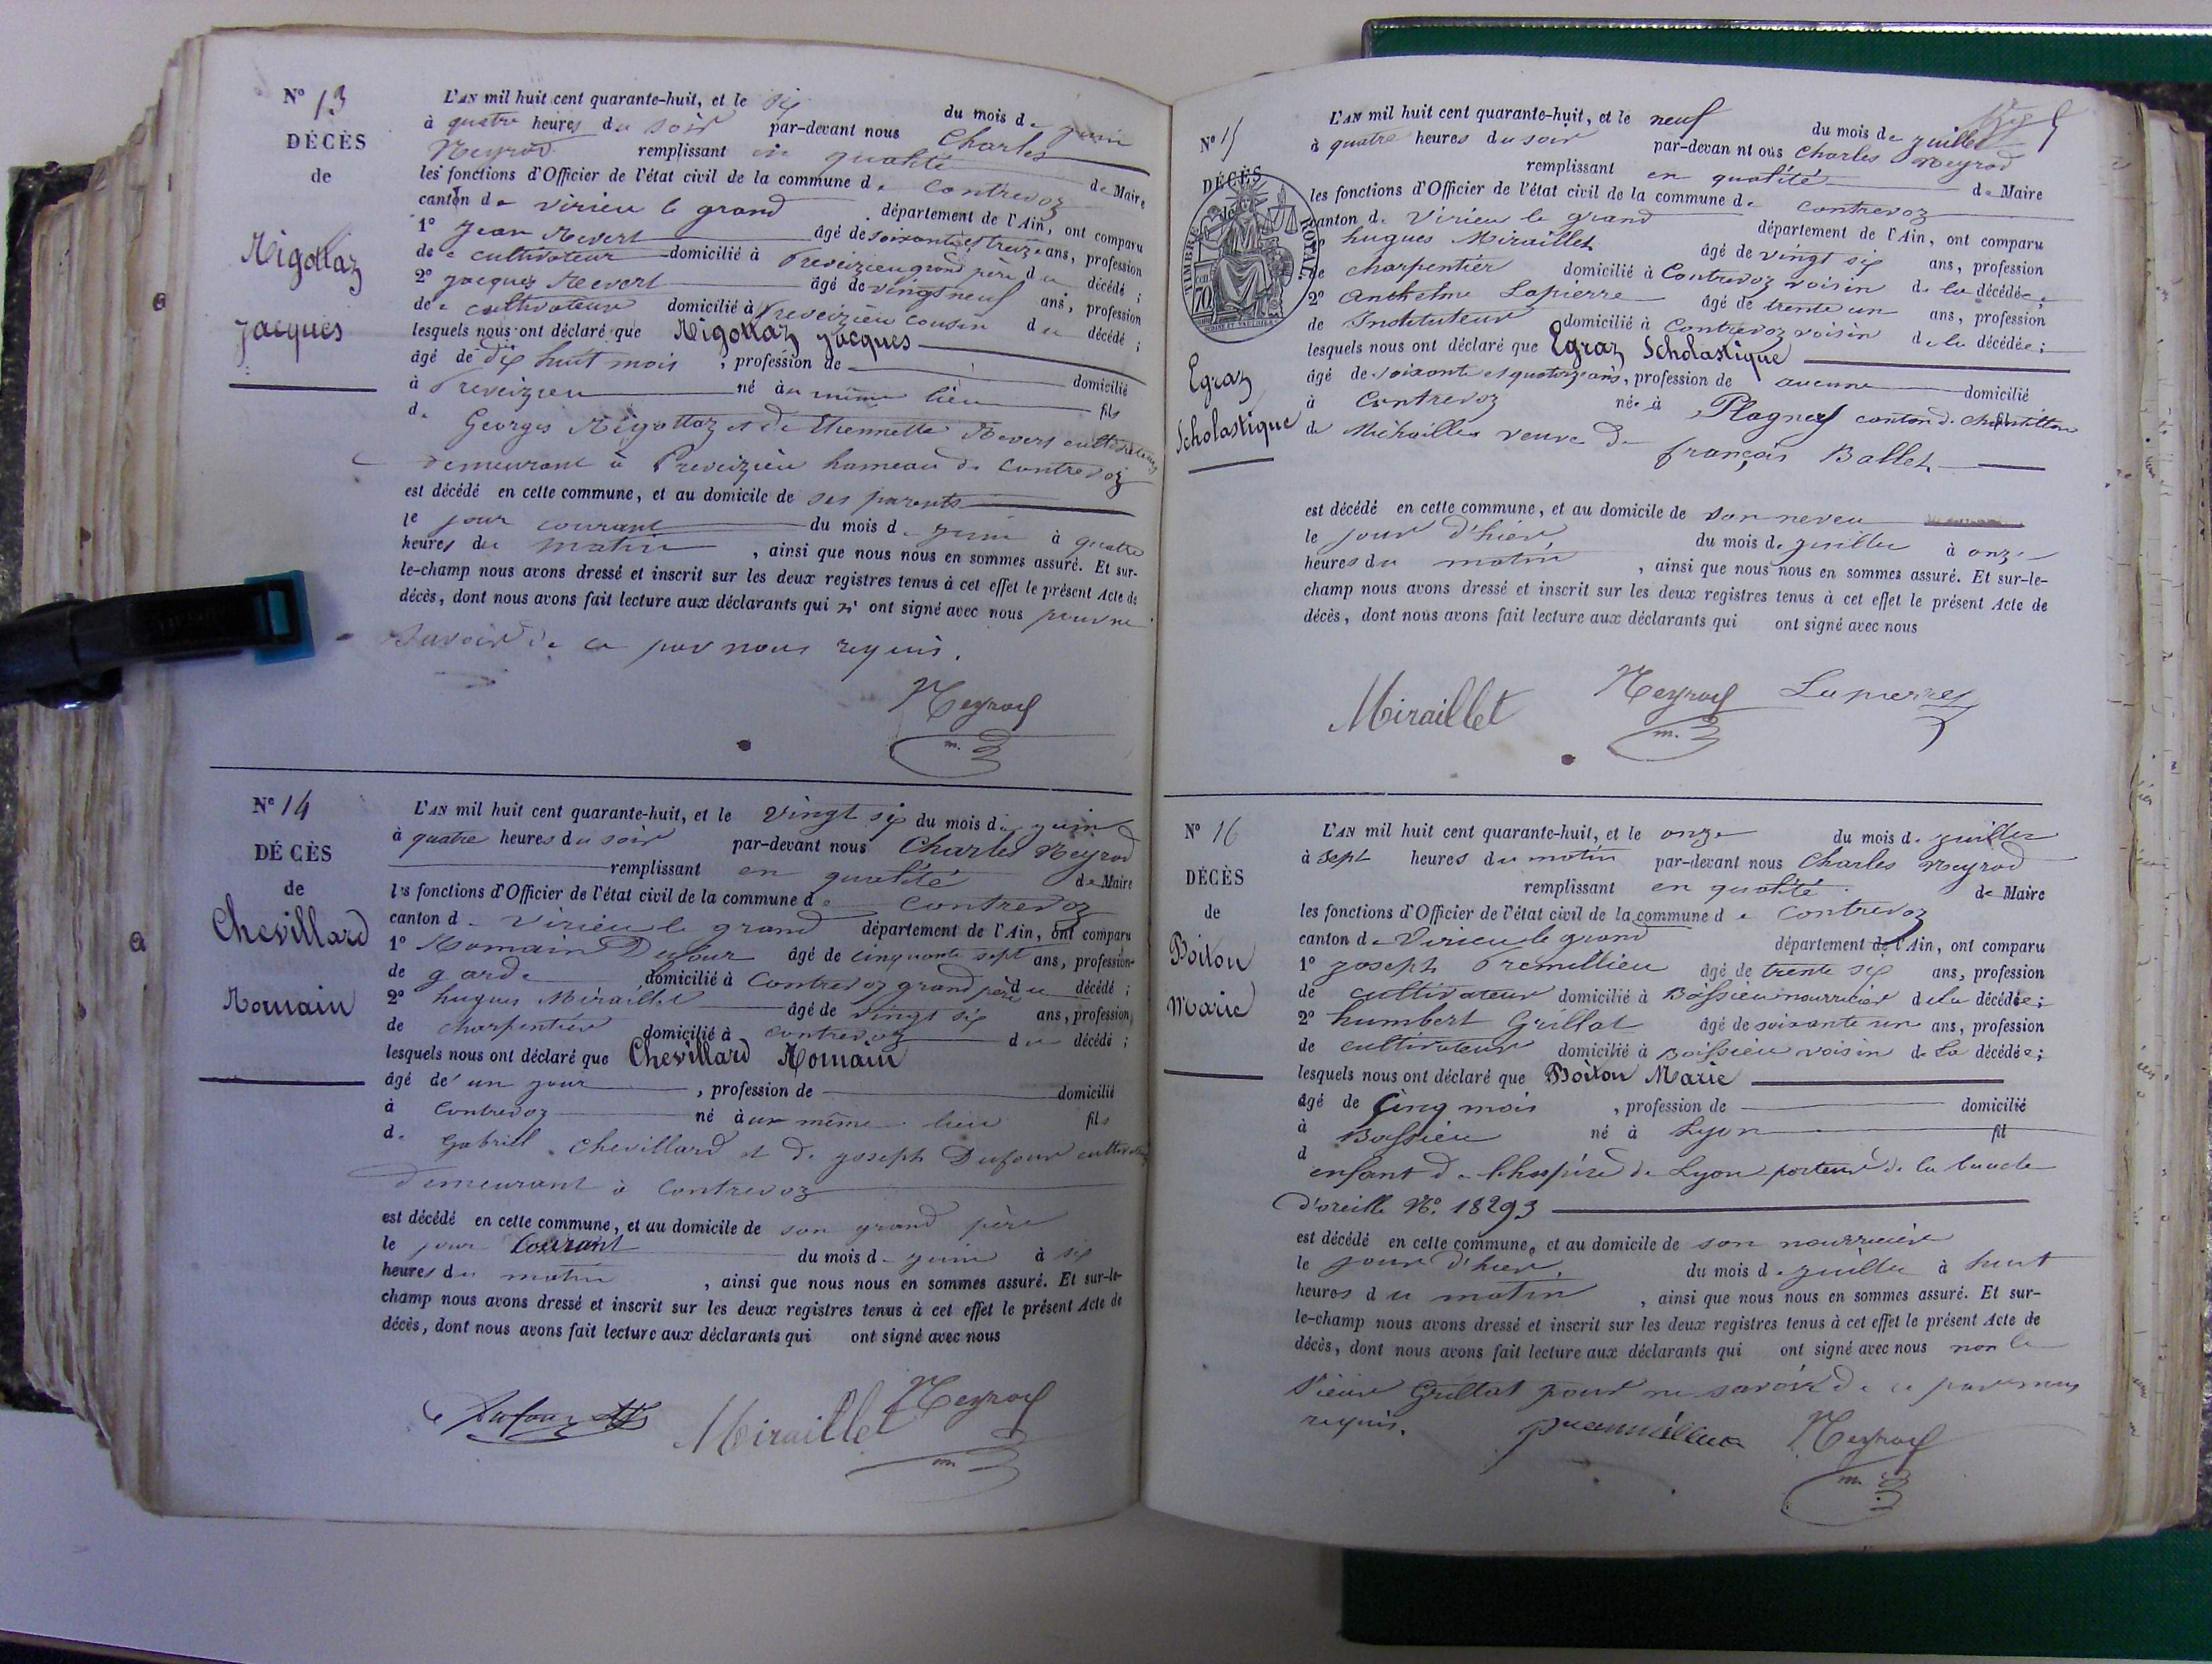 N° 13
DÉCÈS
de
Rigollaz
Jacques
L'AN mil huit cent quarante-huit, et le six du mois de juin
à quatre heures du soir par-devant nous Charles
Neyrod remplissant en qualité de Maire
les fonctions d'Officier de l'état civil de la commune de Contrevoz
canton de virieu le grand département de l'Ain, ont comparu
1° Jean Revert âgé de soixante et treize ans, profession
de cultivateur domicilié à Preveizieu grand père du décédé ;
2° Jacques Revert âgé de vingt neuf ans, profession
de cultivateur domicilié à Preveizieu cousin du décédé ;
lesquels nous ont déclaré que Rigollaz Jacques
âgé de dix huit mois , profession de domicilié
à Preveizieu né au même lieu fils
de Georges Rigollaz et de Etiennette Revert cultivateurs
demeurant à Preveizieu hameau de Contrevoz
est décédé en cette commune, et au domicile de ses parents
le jour courant du mois de juin à quatre
heures du matin , ainsi que nous nous en sommes assuré. Et sur-
le-champ nous avons dressé et inscrit sur les deux registres tenus à cet effet le présent Acte de
décès, dont nous avons fait lecture aux déclarants qui n' ont signé avec nous pour ne
savoir de ce par nous requis.
Neyrod
m.
N° 14
DÉCÈS
de
Chevillard
Romain
L'AN mil huit cent quarante-huit, et le vingt six du mois de juin
à quatre heures du soir par-devant nous Charles Neyrod
remplissant en qualité de Maire
les fonctions d'Officier de l'état civil de la commune de Contrevoz
canton de Virieu le grand département de l'Ain, ont comparu
1° Romain Dufour âgé de cinquante sept ans, profession
de garde domicilié à Contrevoz grand père du décédé ;
2° hugues Miraillet âgé de vingt six ans, profession
de charpentier domicilié à contrevoz du décédé ;
lesquels nous ont déclaré que Chevillard Romain
âgé de un jour , profession de domicilié
à Contrevoz né au même lieu fils
de Gabriel Chevillard et de Joseph Dufour
demeurant à Contrevoz
est décédé en cette commune, et au domicile de son grand père
le jour Courant du mois de juin à six
heures du matin , ainsi que nous nous en sommes assuré. Et sur-le-
champ nous avons dressé et inscrit sur les deux registres tenus à cet effet le présent Acte de
décès, dont nous avons fait lecture aux déclarants qui ont signé avec nous
Dufour Miraillet Neyrod
m.
N° 15
DÉCÈS
de
TIMBRE ROYAL
70
Egraz
Scholastique
L'AN mil huit cent quarante-huit, et le neuf du mois de juillet
à quatre heures du soir par-devan nt ous Charles Neyrod
remplissant en qualité de Maire
les fonctions d'Officier de l'état civil de la commune de contrevoz
canton de Virieu le grand département de l'Ain, ont comparu
hugues Miraillet âgé de vingt six ans, profession
de charpentier domicilié à Contrevoz voisin de la décédée ;
2° Anthelme Lapierre âgé de trente un ans, profession
de Instituteur domicilié à Contrevoz voisin de la décédée ;
lesquels nous ont déclaré que Egraz Scholastique
âgé de soixante et quatorze ans, profession de aucune domicilié
à Contrevoz née à Plagnes canton de chatillon
de Michaille veuve de
françois Ballet
est décédé en cette commune, et au domicile de son neveu
le jour d'hier du mois de juillet à onze
heures du matin , ainsi que nous nous en sommes assuré. Et sur-le-
champ nous avons dressé et inscrit sur les deux registres tenus à cet effet le présent Acte de
décès, dont nous avons fait lecture aux déclarants qui ont signé avec nous
Miraillet Neyrod Lapierre
m.
N° 16
DÉCÈS
de
Boiton
Marie
L'AN mil huit cent quarante-huit, et le onze du mois de juillet
à sept heures du matin par-devant nous Charles Neyrod
remplissant en qualité de Maire
les fonctions d'Officier de l'état civil de la commune de Contrevoz
canton de Virieu le grand département de l'Ain, ont comparu
1° Joseph Premillieu âgé de trente six ans, profession
de cultivateur domicilié à Boissieu nourricier de la décédée ;
2° humbert Grillat âgé de soixante un ans, profession
de cultivateur domicilié à Boissieu voisin de la décédée ;
lesquels nous ont déclaré que Boiton Marie
âgé de Cinq mois , profession de domicilié
à Boissieu né à Lyon fil
d enfant de l'hospice de Lyon porteur de la boucle
d'oreille N°. 18293
est décédé en cette commune, et au domicile de son nourricier
le jour d'hier du mois de juillet à huit
heures du matin , ainsi que nous nous en sommes assuré. Et sur-
le-champ nous avons dressé et inscrit sur les deux registres tenus à cet effet le présent Acte de
décès, dont nous avons fait lecture aux déclarants qui ont signé avec nous non le
sieur Grillat pour ne savoir de ce par nous
requis. Neyrod
m.